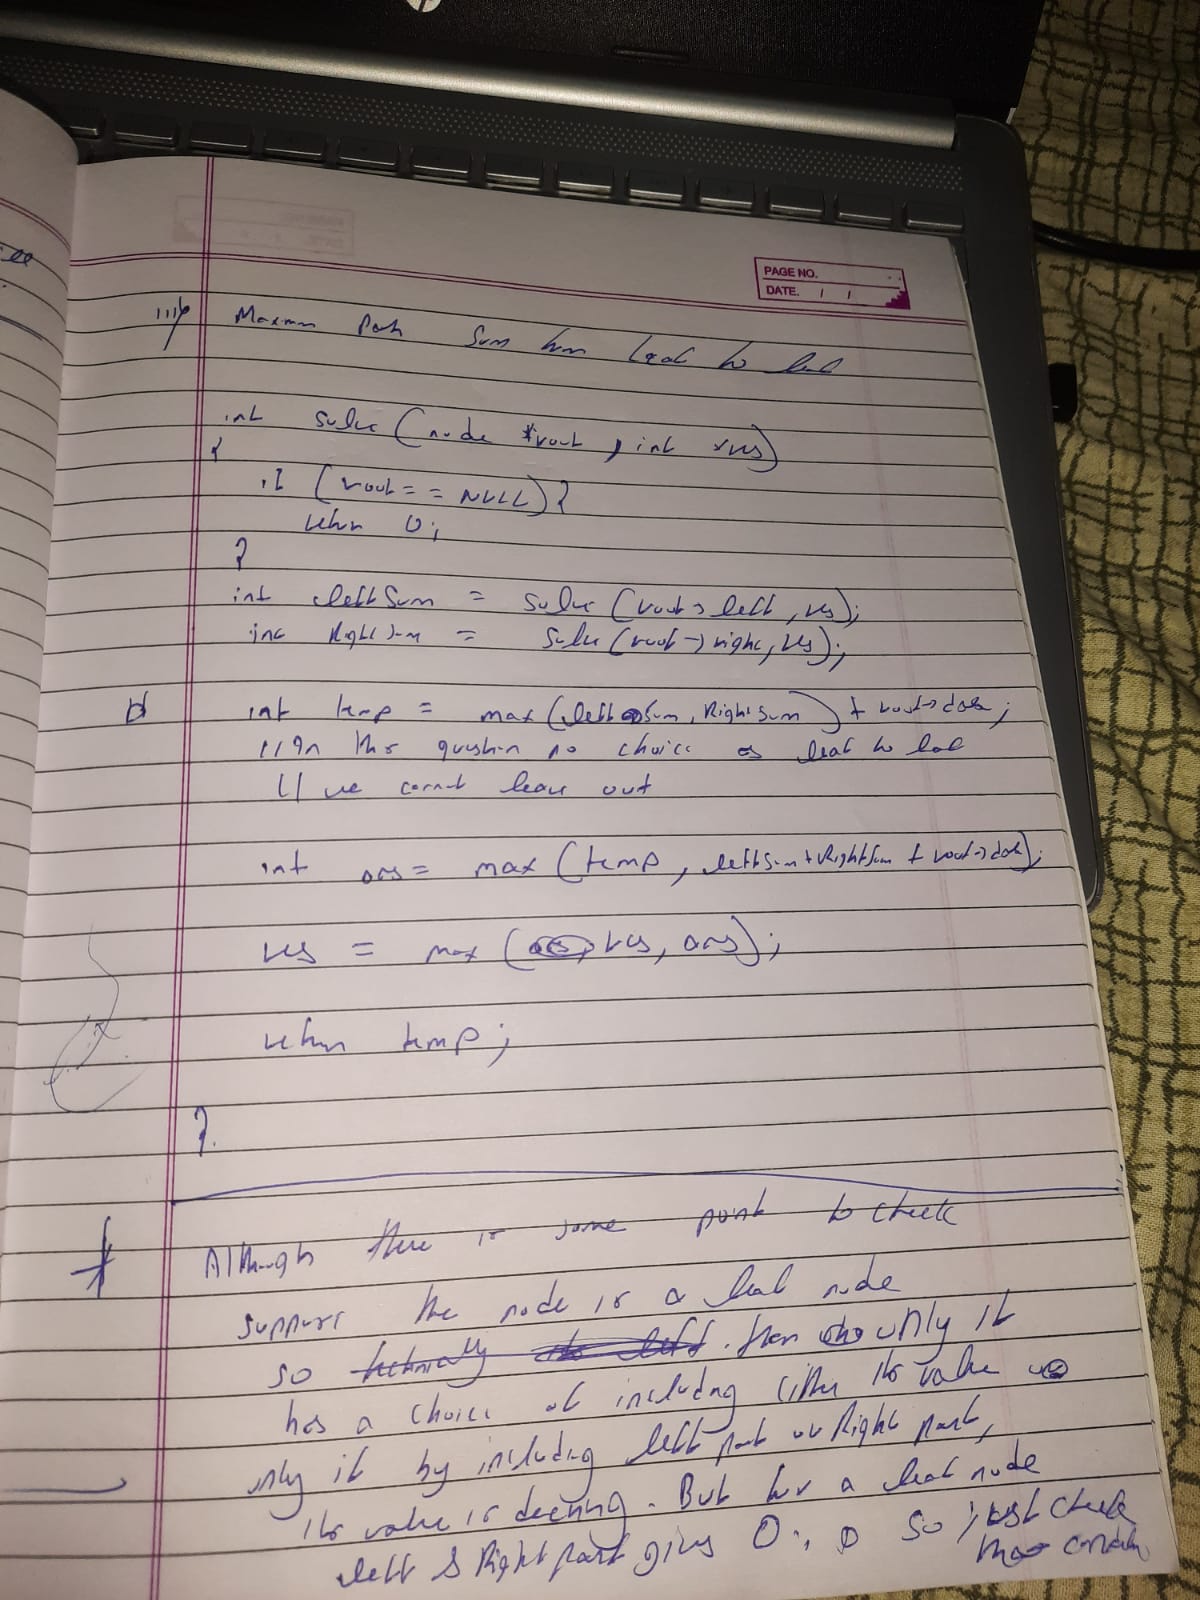 PAGE NO.
DATE. / /
iii) Maximum Path Sum from leaf to leaf
int solve (node *root, int &res)
{
if (root == NULL) {
return 0;
}
int leftSum = solve (root->left, res);
int RightSum = solve (root->right, res);
int temp = max (leftSum, RightSum) + root->data;
// In this question no choice as leaf to leaf
// we cannot leave out
int ans = max (temp, leftSum + RightSum + root->data);
res = max (res, ans);
return temp;
}
Although there is some point to check
suppose the node is a leaf node
so then only it
has a choice of including either its value
only if by including left part or Right part,
its value is decring. But for a leaf node
left & Right part gives 0. So just check
condn